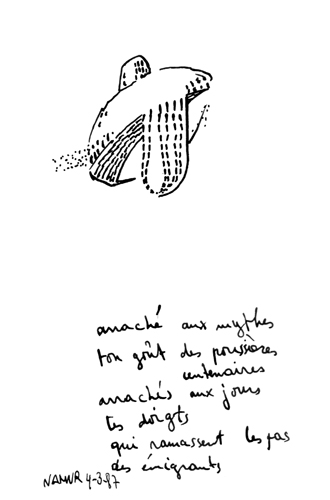 arraché aux mythes
ton goût des poussières
centenaires
arrachés aux jours
tes doigts
qui ramassent les pas
des émigrants
NAMUR 4-3-87